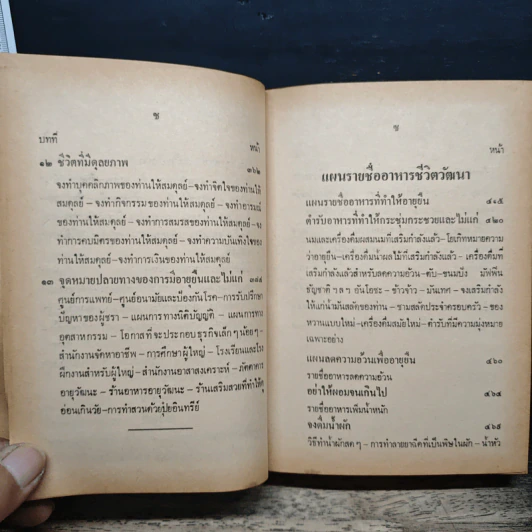 ช
บทที่
หน้า
๑๒ ชีวิตที่มีดุลยภาพ ๓๖๒
จงทำบุคคลิกภาพของท่านให้สมดุลย์ – จงทำจิตใจของท่านให้
สมดุลย์ – จงทำกิจกรรมของท่านให้สมดุลย์ – จงทำอารมณ์
ของท่านให้สมดุลย์ – จงทำการสมรสของท่านให้สมดุลย์ – จง
ทำการคบมิตรของท่านให้สมดุลย์ – จงทำความบันเทิงใจของ
ท่านให้สมดุลย์ – จงทำการเงินของท่านให้สมดุลย์
๑๓ จุดหมายปลายทางของการมีอายุยืนและไม่แก่
ศูนย์การแพทย์ – ศูนย์อนามัยและป้องกันโรค – การรับปรึกษา
ปัญหาของผู้ชรา – แผนการทางนิติบัญญัติ – แผนการทาง
อุตสาหกรรม – โอกาสที่จะประกอบธุรกิจเล็กๆ น้อยๆ –
สำนักงานจัดหาอาชีพ – การศึกษาผู้ใหญ่ – โรงเรียนและโรง
ฝึกงานสำหรับผู้ใหญ่ – สำนักงานอาสาสงเคราะห์ – ภัตตาคาร
อายุวัฒนะ – ร้านอาหารอายุวัฒนะ – ร้านเสริมสวยที่ทำให้ดู
อ่อนเกินวัย – การทำสวนด้วยปุ๋ยอินทรีย์
ซ
หน้า
แผนรายชื่ออาหารชีวิตวัฒนา
แผนรายชื่ออาหารที่ทำให้อายุยืน ๔๑๕
ตำรับอาหารที่ทำให้กระชุ่มกระชวยและไม่แก่ ๔๒๐
นมและเครื่องดื่มผสมนมที่เสริมกำลังแล้ว – โยเกิทหมายความ
ว่าอายุยืน – เครื่องดื่มน้ำผลไม้ที่เสริมกำลังแล้ว – เครื่องดื่มที่
เสริมกำลังแล้วสำหรับลดความอ้วน – ตับ – ขนมปัง มัฟฟิน
ธัญชาติ ฯลฯ อันโอชะ – ข้าวจ้าว – มันเทศ – จงเสริมกำลัง
ให้แก่น้ำมันสลัดของท่าน – ชามสลัดประจำครอบครัว – ของ
หวานแบบใหม่ – เครื่องดื่มสมัยใหม่ – ตำรับที่มีความมุ่งหมาย
เฉพาะอย่าง
แผนลดความอ้วนเพื่ออายุยืน ๔๖๐
รายชื่ออาหารลดความอ้วน
อย่าให้ผอมจนเกินไป ๔๖๔
รายชื่ออาหารเพิ่มน้ำหนัก
จงดื่มน้ำผัก ๔๖๕
วิธีทำน้ำผักสดๆ – การทำลายยาฉีดที่เป็นพิษในผัก – น้ำหัว